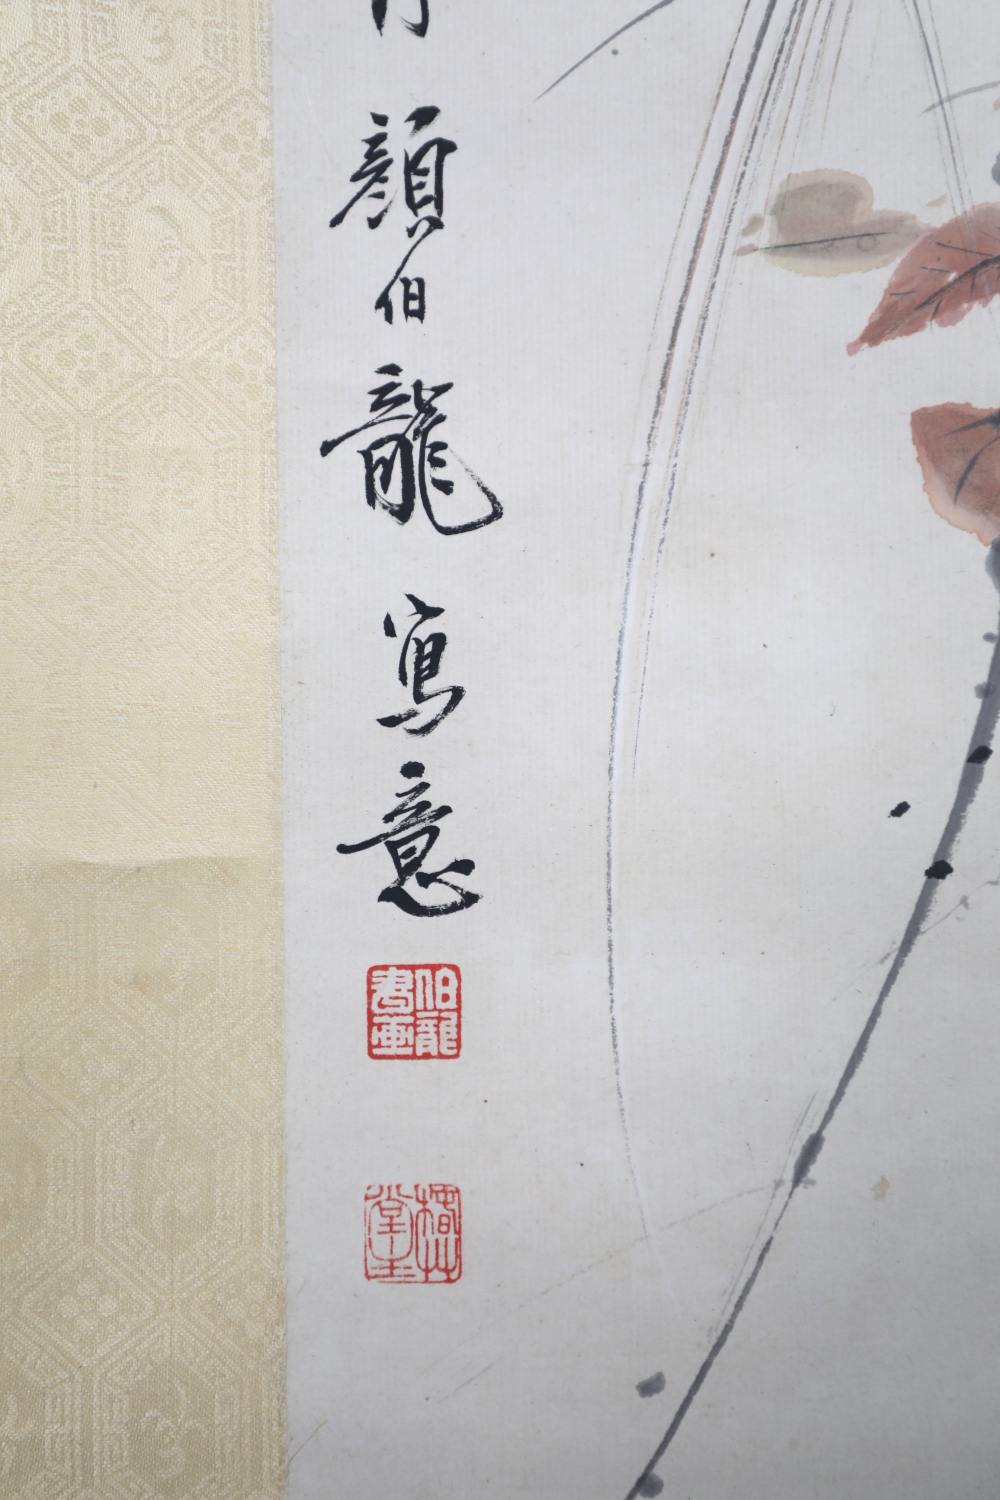 顏伯龍寫意
伯龍
書畫